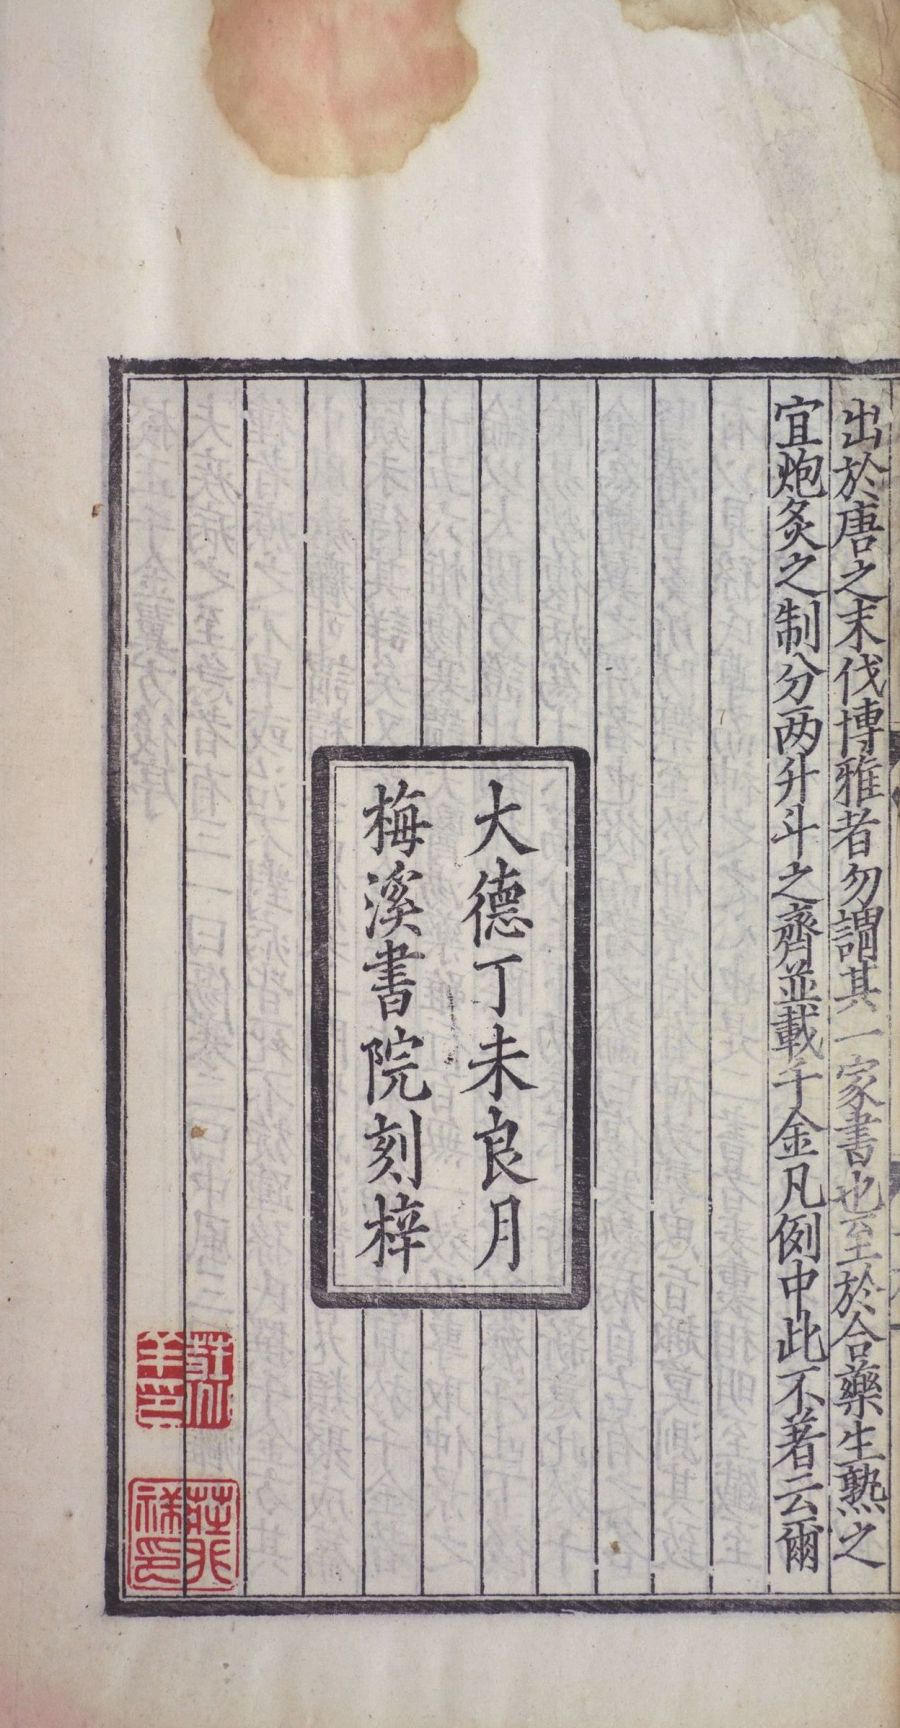 出於唐之末伐博雅者勿謂其一家書也至於合藥生熟之
宜炮炙之制分两升斗之齊並載千金凡例中此不著云爾
大德丁未良月
梅溪書院刻梓